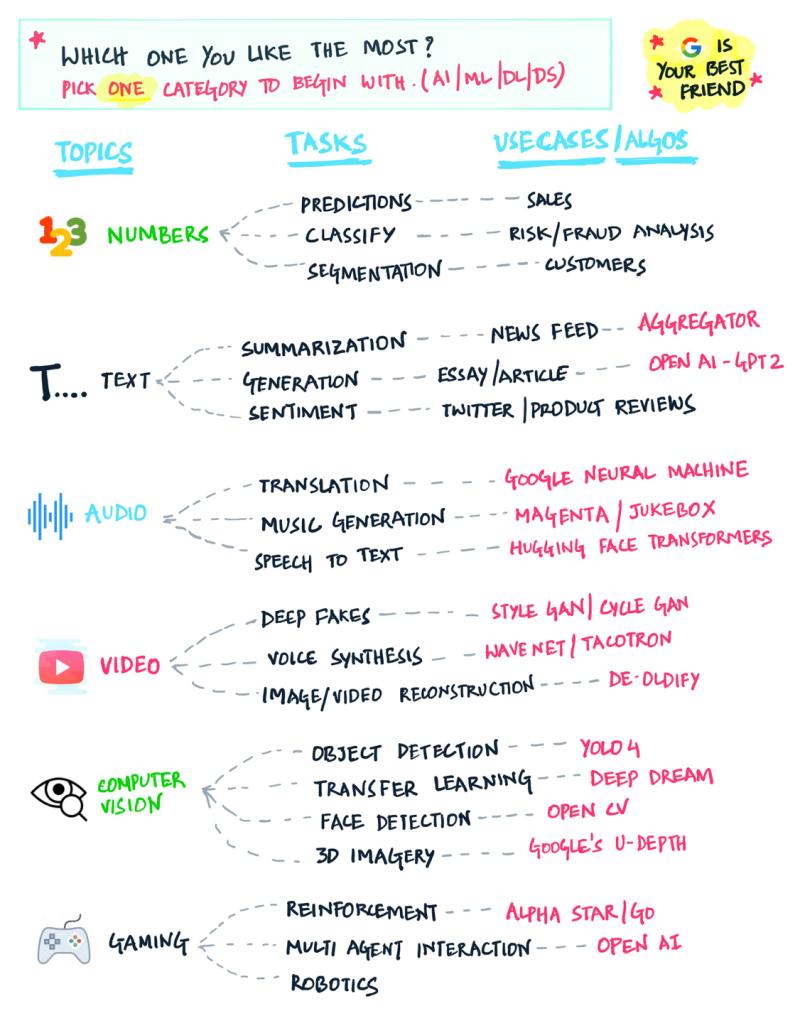 * WHICH ONE YOU LIKE THE MOST?
PICK ONE CATEGORY TO BEGIN WITH. (AI/ML/DL/DS)
G IS
YOUR BEST
FRIEND
TOPICS TASKS USECASES/ALGOS
123 NUMBERS
PREDICTIONS SALES
CLASSIFY RISK/FRAUD ANALYSIS
SEGMENTATION CUSTOMERS
T.... TEXT
SUMMARIZATION NEWS FEED AGGREGATOR
GENERATION ESSAY/ARTICLE OPEN AI-GPT2
SENTIMENT TWITTER/PRODUCT REVIEWS
AUDIO
TRANSLATION GOOGLE NEURAL MACHINE
MUSIC GENERATION MAGENTA/JUKEBOX
SPEECH TO TEXT HUGGING FACE TRANSFORMERS
VIDEO
DEEP FAKES STYLE GAN/CYCLE GAN
VOICE SYNTHESIS WAVENET/TACOTRON
IMAGE/VIDEO RECONSTRUCTION DE-OLDIFY
COMPUTER
VISION
OBJECT DETECTION YOLO4
TRANSFER LEARNING DEEP DREAM
FACE DETECTION OPEN CV
3D IMAGERY GOOGLE'S U-DEPTH
GAMING
REINFORCEMENT ALPHA STAR/GO
MULTI AGENT INTERACTION OPEN AI
ROBOTICS